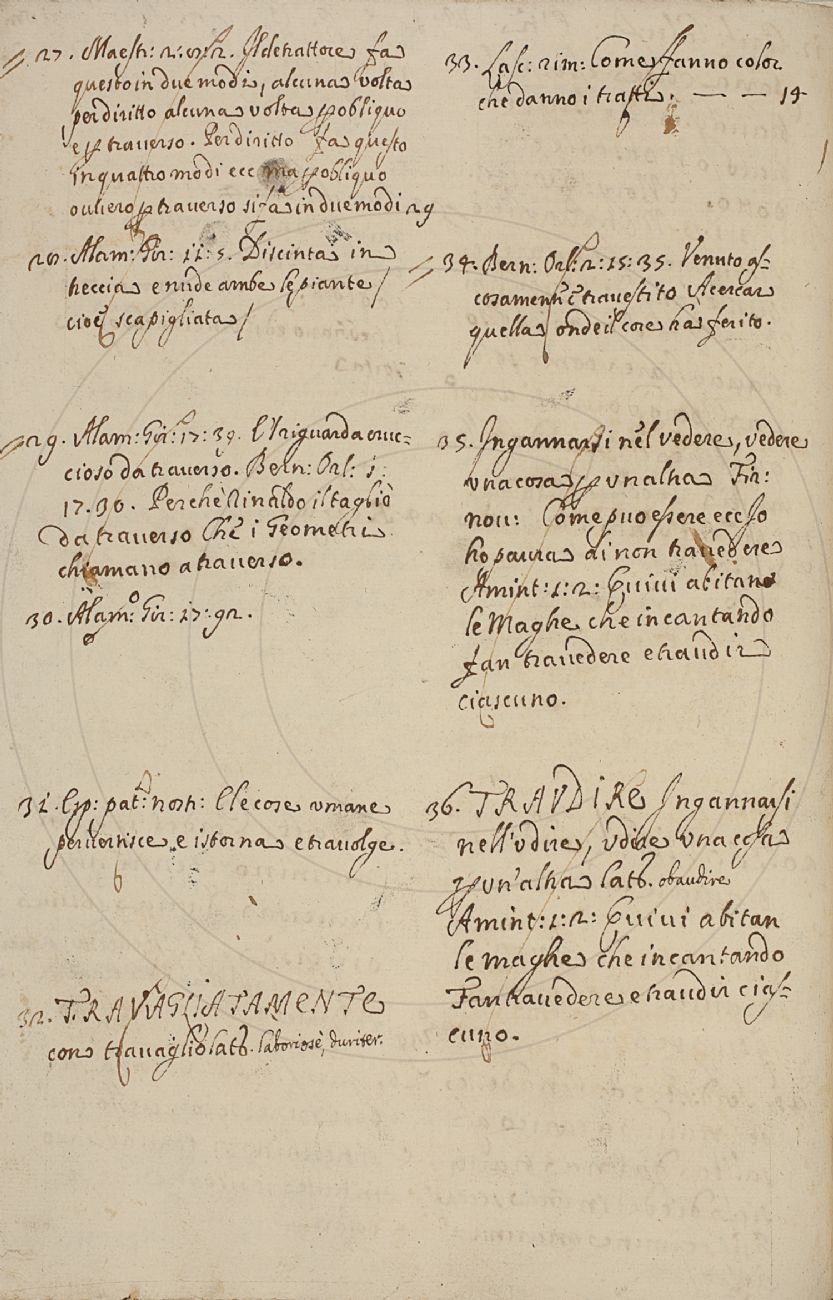 27. Maestr: 2: Il detrattore fa
questo in due modi, alcuna volta
per diritto alcuna volta p obliquo
e p traverso. Per diritto fa questo
in quattro modi ecc ma p obliquo
ouliero p traverso si fa in due modi 29
28. Alam: Gir: 11: 5. Discinta in
treccia e nude ambe le piante /
cioè scapigliata /
29. Alam: Gir: 17: 39. E'l riguarda cruc-
cioso da traverso. Bern: Orl: 1:
17. 30. Perchè Rinaldo il tagliò
da traverso Chè i Geometri
chiamano a traverso.
30. Alam: Gir: 17: 92.
31. Esp: pat: nostr: E le cose umane
pervertisce e istorna e travolge.
32. TRAVAGLIATAMENTE
con travaglio latḅ. laboriosè, duriter.
33. Lasc: rim: Come fanno color
che danno i tratti. — — 14
34. Bern: Orl: 2: 15: 35. Venuto as-
cosamente travestito A cercar
quella onde il core ha ferito.
35. Ingannarsi nel vedere, vedere
una cosa p un altra Fir:
nou: Come puo essere ecc Io
ho paura di non travedere
Amint: 1: 2: Quiui abitano
le Maghe che incantando
fan travedere e traudir
ciascuno.
36. TRAVDIRE Ingannarsi
nell'udire, udire una cosa
p un'altra latḅ. obaudire
Amint: 1: 2: Quiui abitan
le maghe che incantando
Fan travedere e traudir cias-
cuno.